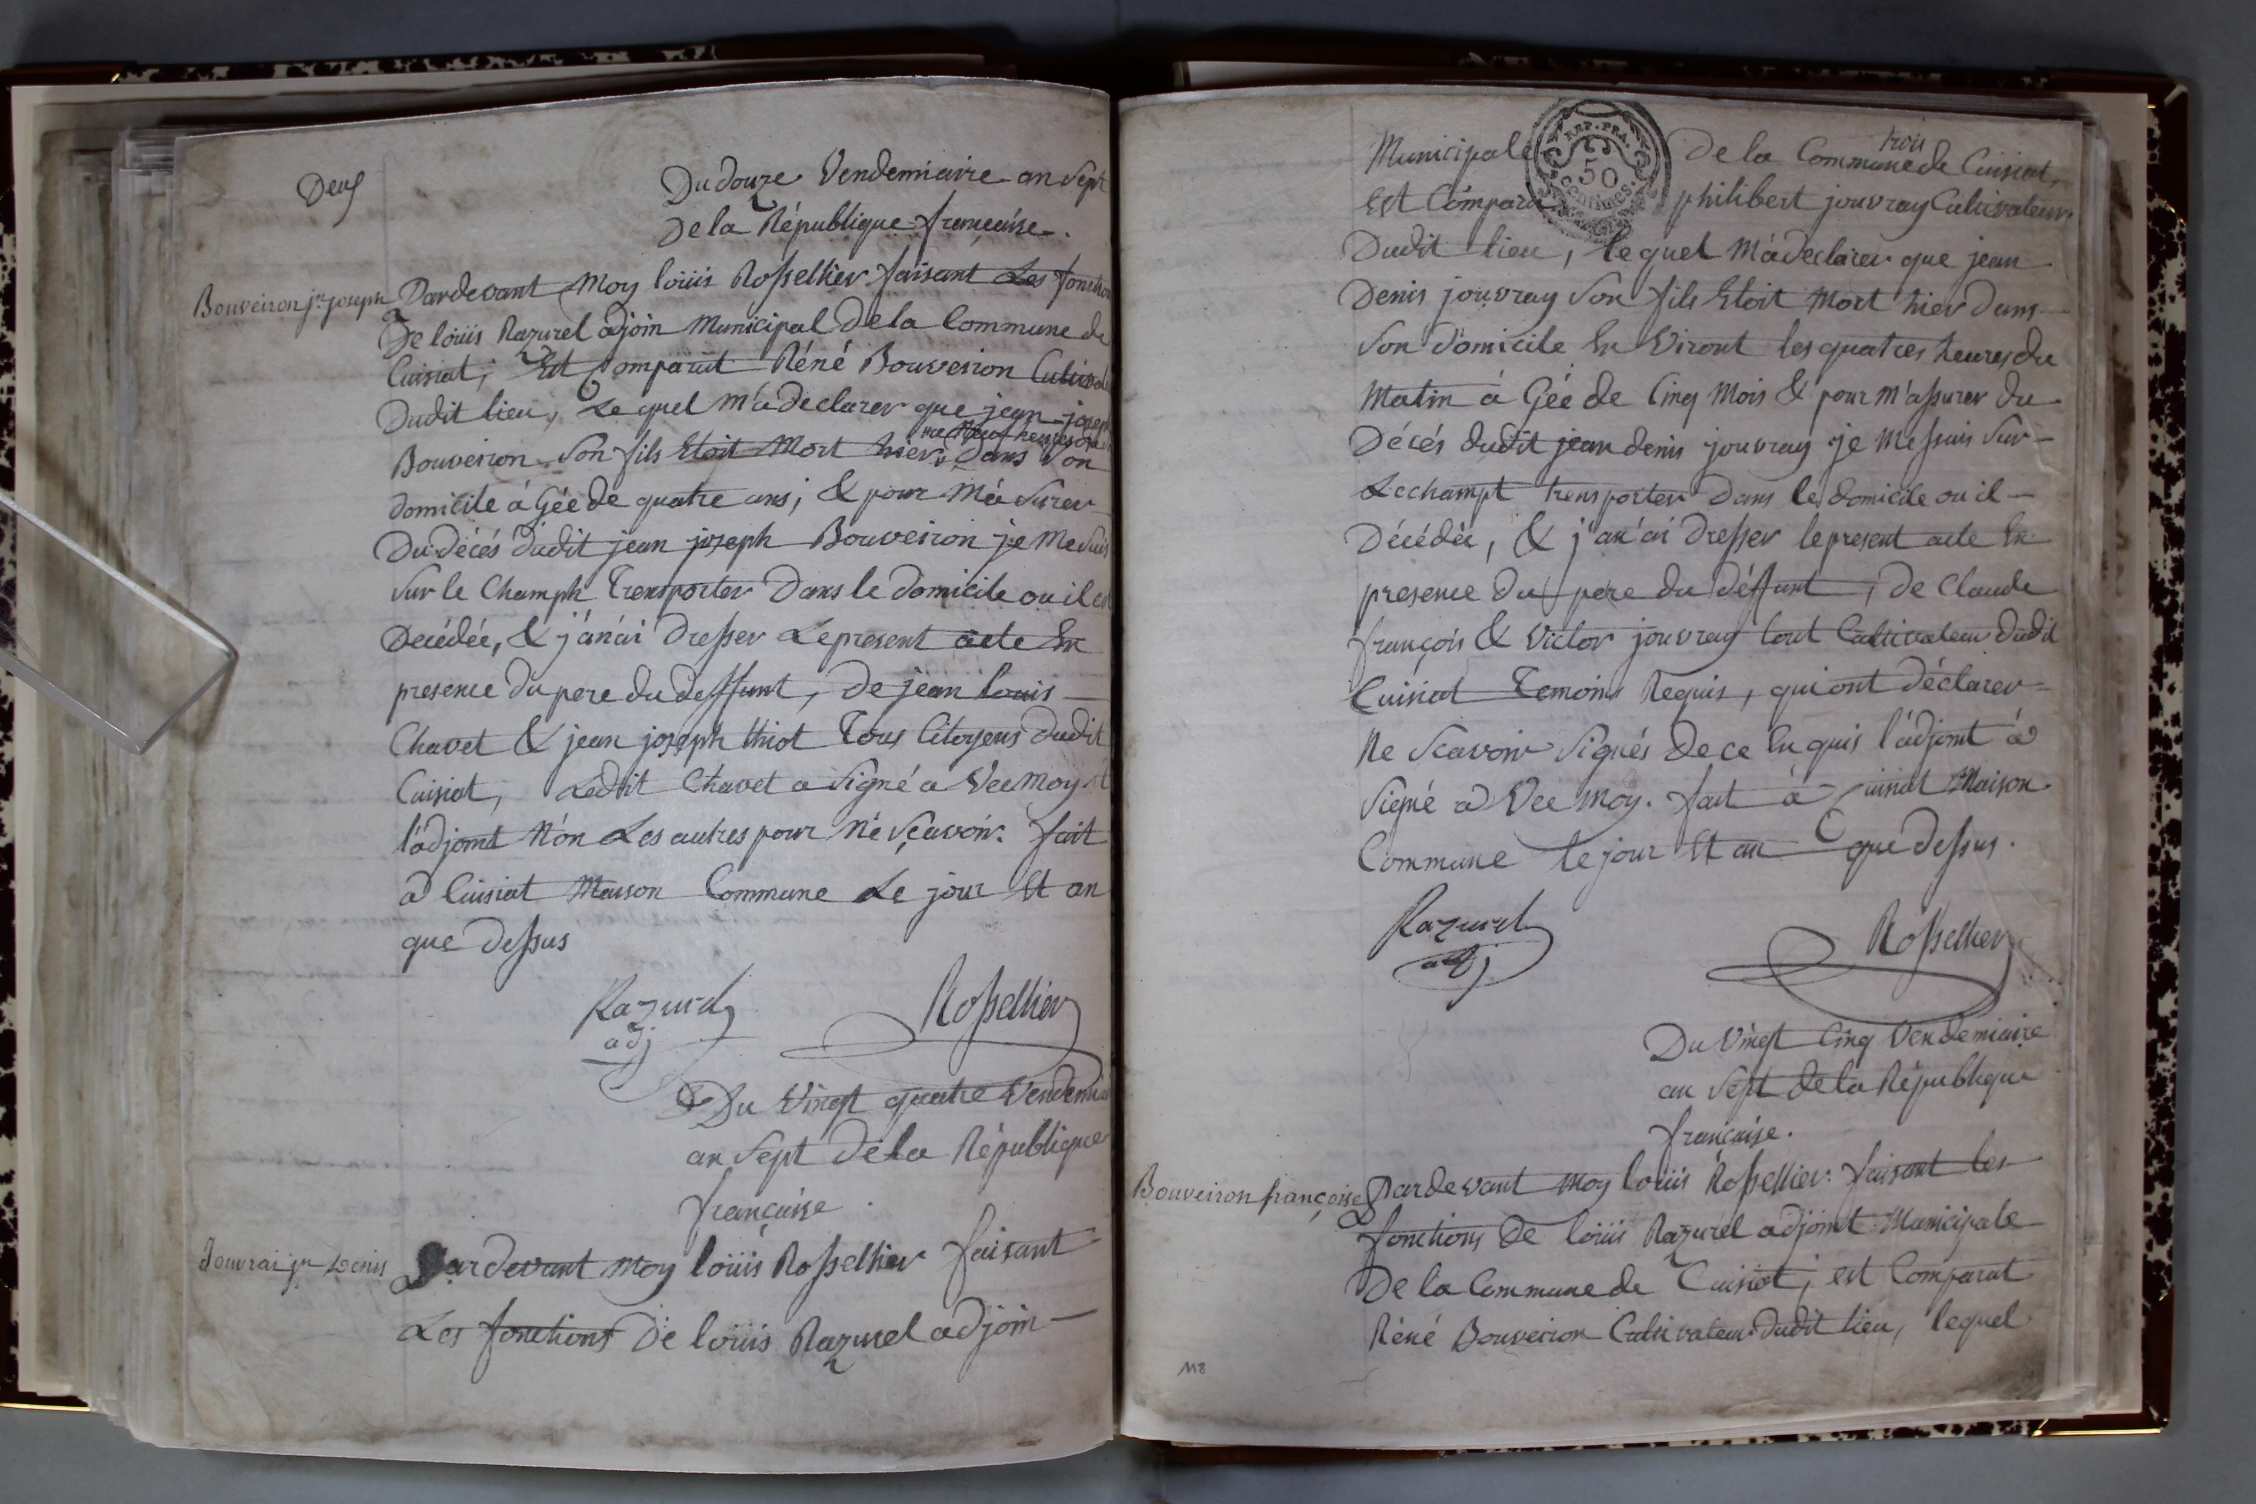 Deux
Du douze Vendemiaire an Sept
De la République françaíse.
Bouveiron jn joseph
Pardevant Moy loüis Rossellier faisant Les fonction
De loüis Razurel adjoin Municipal De la Commune de
Cuisiat, Est Comparut Réné Bouveiron Cultivat
Dudit lieu, Le quel m'a declarer que jean joseph
Bouveiron Son fils Etoit Mort hier Dans Son
domicile á Gée de quatre ans; & pour Má Surer
Du décés dudit jean joseph Bouveiron je me Suis
Sur le Champt Transporter Dans le domicile ou il est
Decédée, & j'ánái Dresser Le present acte En
presence du pere du deffunt, De jean louis
Chavet & jean joseph thiot Tous Citoyens dudit
Cuisiat, Ledit Chavet a Signé a Vec Moy &
l'ádjoint N'on Les autres pour Né Sçavoir. fait
à Cuisiat Maison Commune Le jour Et an
que Dessus
Razurel Rossellier
adj
Du Vingt quatre Vendemiai
an Sept De la République
française.
Jouvrai jn Denis
Pardevant Moy loüis Rossellier faisant
Les fonctions De loüis Razurel adjoin
trois
Municipale De la Commune de Cuisiat,
REP. FRA.
50
CENTIMES.
Est Comparu philibert jouvray Cultivateur
Dudit lieu, le quel M'á declarer que jean
Denis jouvray Son fils Etoit Mort hier dans
Son Domicile En Viront les quatres heures du
Matin á Gée de Cinq Mois & pour M'assurer du
Décés dudit jean denis jouvray je Me Suis Sur
Lechampt transporter Dans le domicile ou il
Décédée, & j'an'ai Dresser le present acte En
presence du pere du Déffunt, De Claude
françois & Victor jouvray tout Cultivateur dudit
Cuisiat Temoins Requis, qui ont déclarer
Ne Scavoir Signés De ce En quis l'ádjoint á
Signé a Vec Moy. fait á Cuisiat Maison
Commune le jour Et an que dessus.
Razurel Rossellier
adj
Du Vingt Cinq Vendemiaire
an Sept de la République
française.
Bouveiron françoise
Pardevant Moy loüis Rossellier faisant les
fonctions De loüis Razurel adjoint Municipale
De la Commune de Cuisiat, est Comparut
Réné Bouveiron Cultivateur dudit lieu, lequel
118